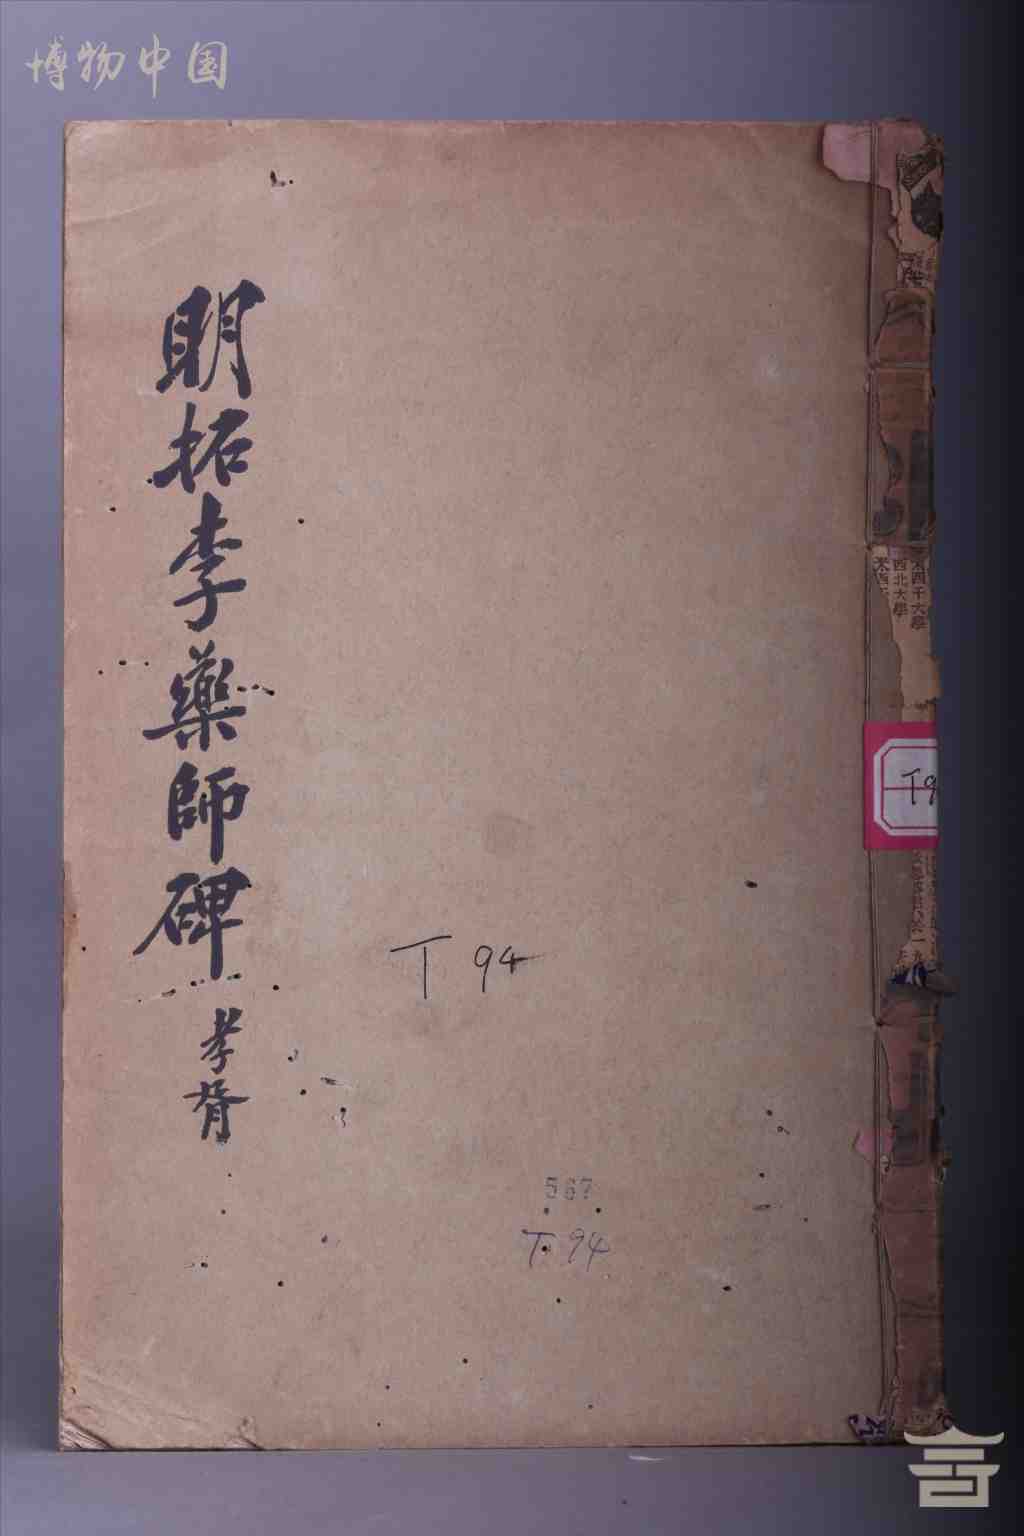 博物中国
明拓李藥師碑
孝胥
T 94
567
T. 94
西北大學
T9